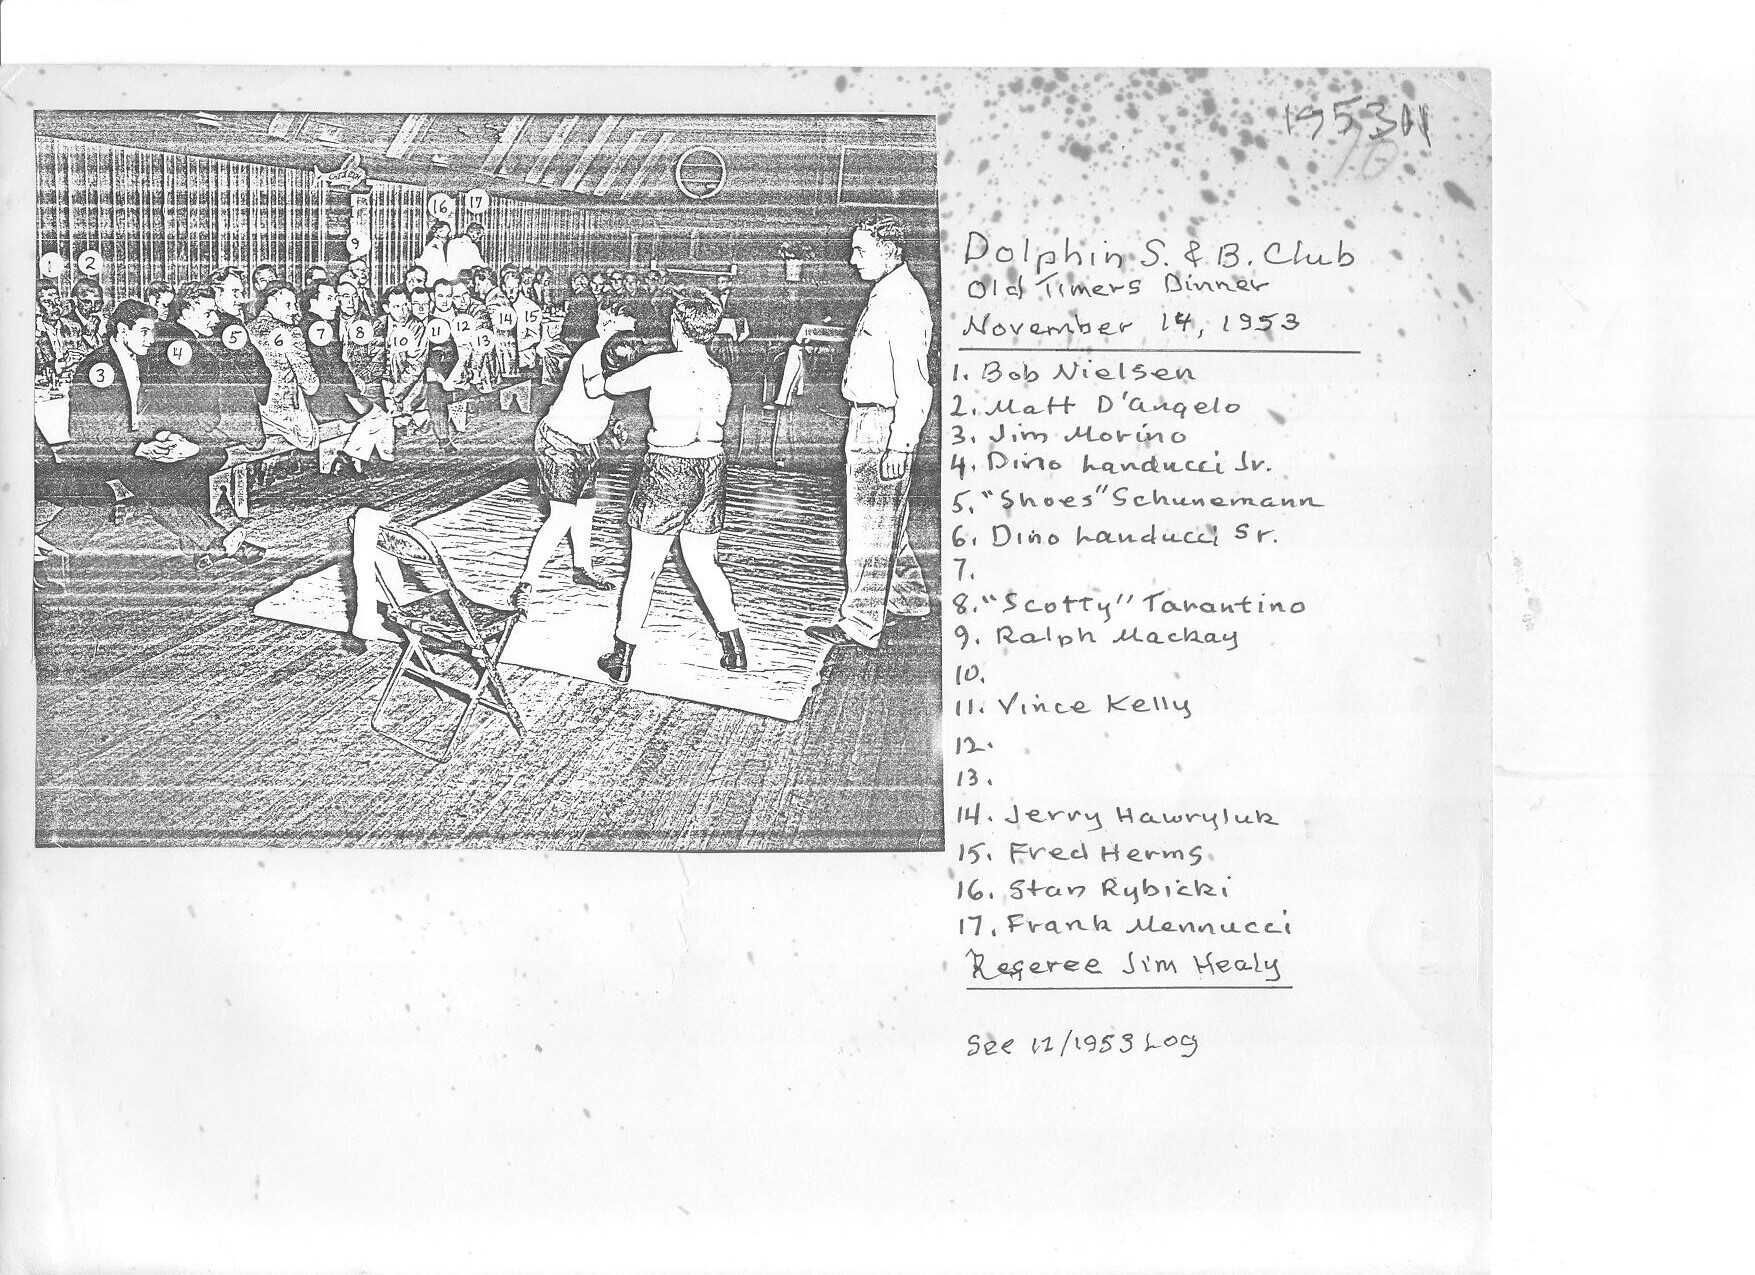 1953
Dolphin S. & B. Club
Old Timers Dinner
November 14, 1953
1. Bob Nielsen
2. Matt D'Angelo
3. Jim Morino
4. Dino Landucci Jr.
5. "Shoes" Schunemann
6. Dino Landucci Sr.
7.
8. "Scotty" Tarantino
9. Ralph Mackay
10.
11. Vince Kelly
12.
13.
14. Jerry Hawryluk
15. Fred Herms
16. Stan Rybicki
17. Frank Mennucci
Referee Jim Healy
See 12/1953 Log
16 17
9
1 2
3 4 5 6 7 8 10 11 12 13 14 15